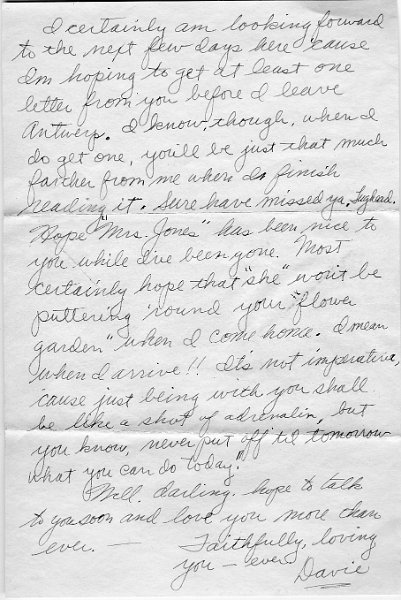 I certainly am looking forward
to the next few days here 'cause
I'm hoping to get at least one
letter from you before I leave
Antwerp. I know, though, when I
do get one, you'll be just that much
farther from me when I finish
reading it. Sure have missed ya,
Hope "Mrs. Jones" has been nice to
you while I've been gone. Most
certainly hope that "she" won't be
puttering 'round your "flower
garden" when I come home. I mean
when I arrive!! It's not imperative,
'cause just being with you shall
be like a shot of adrenalin, but
you know, never put off 'til tomorrow
what you can do today."
Well, darling, hope to talk
to you soon and love you more than
ever. —
Faithfully, loving
you — ever
Davie